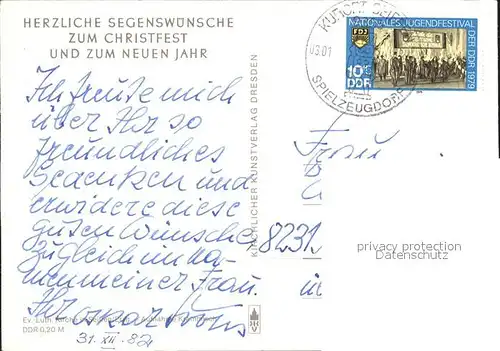 HERZLICHE SEGENSWÜNSCHE
ZUM CHRISTFEST
UND ZUM NEUEN JAHR
Ich freute mich
über Ihr so
freundliches
Gedenken und
erwidere diese
guten Wünsche
zugleich im Na-
men meiner Frau.
Ihr
31. XII. 82
Ev.-Luth. Kirche
DDR 0,20 M
KIRCHLICHER KUNSTVERLAG DRESDEN
V
KURORT SEIFFEN
03.01
SPIELZEUGDORF
NATIONALES JUGENDFESTIVAL
DER DDR 1979
FDJ
10+5
DDR
Frau
8231
privacy protection
Datenschutz